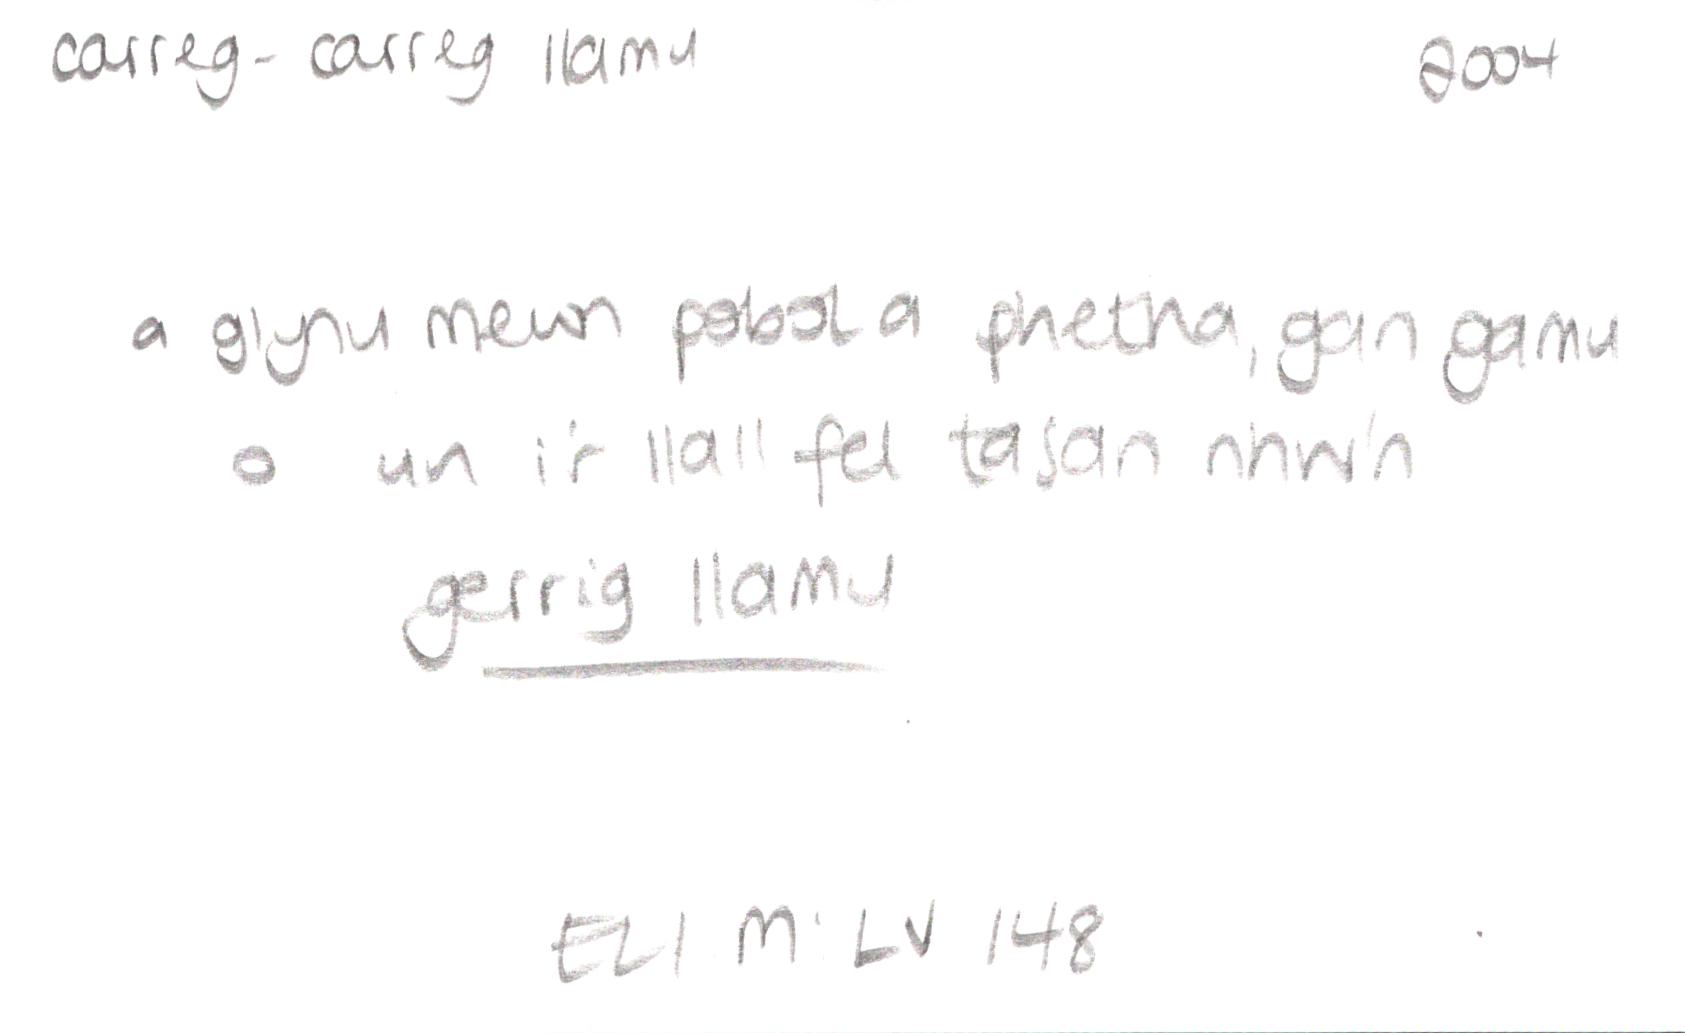 carreg - carreg llamu 2004
a glynu mewn pobol a phetha, gan gamu
o un i'r llall fel tasan nhw'n
gerrig llamu
ELl M: LV 148